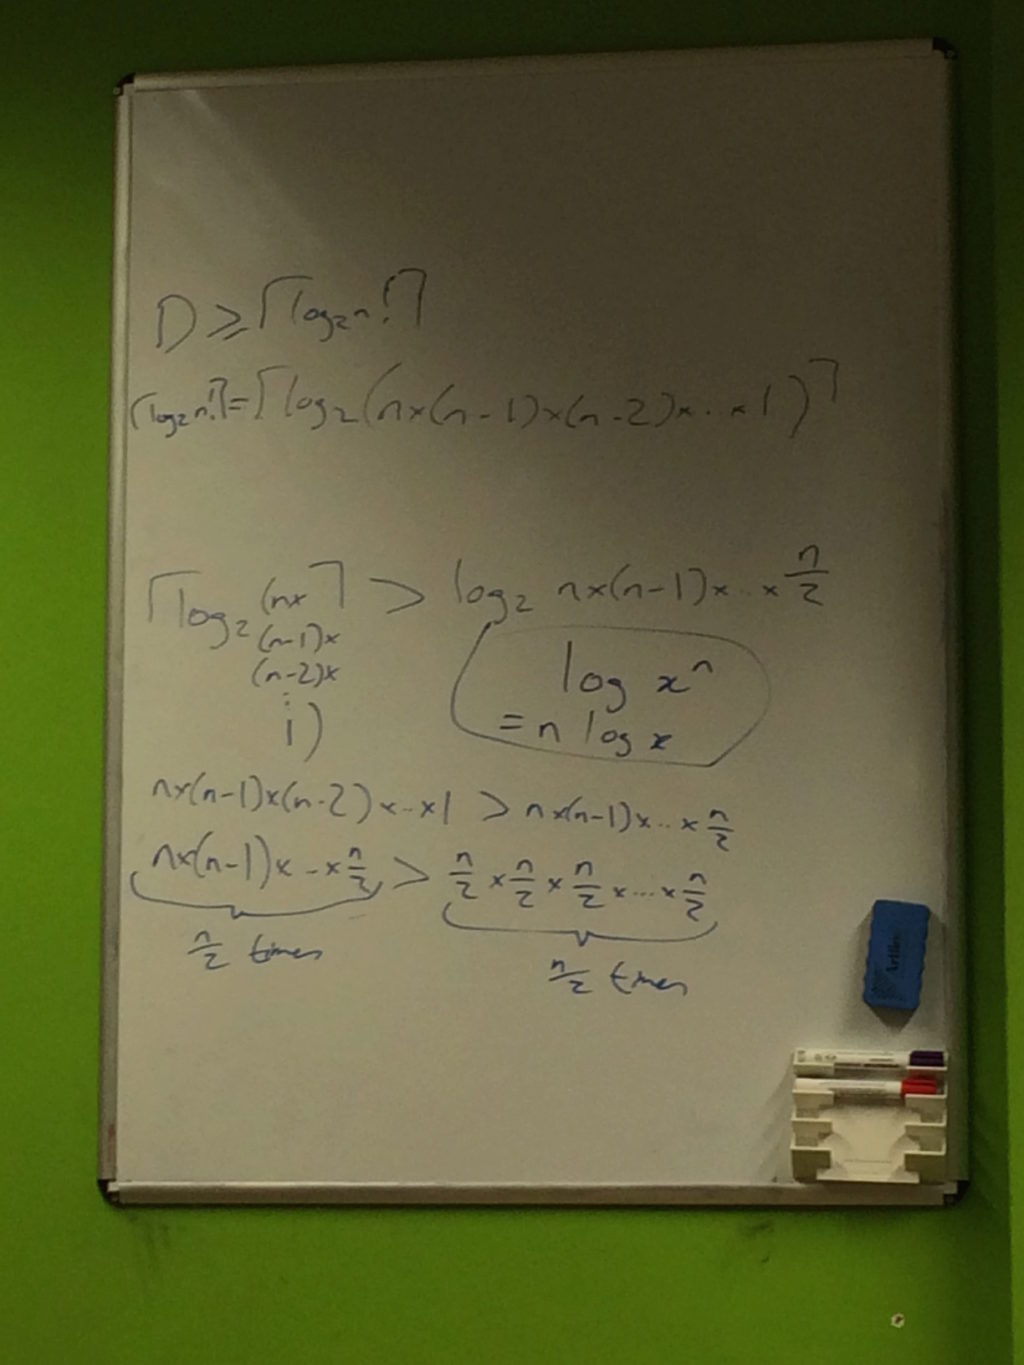 D ≥ ⌈log₂n!⌉
⌈log₂n!⌉ = ⌈log₂(n×(n-1)×(n-2)×..×1)⌉
⌈log₂(n×⌉ > log₂ n×(n-1)×..×n/2
(n-1)×
(n-2)×
⋮
1)
log xⁿ
= n log x
n×(n-1)×(n-2)×..×1 > n×(n-1)×..×n/2
n×(n-1)×..×n/2 > n/2×n/2×n/2×...×n/2
n/2 times
n/2 times